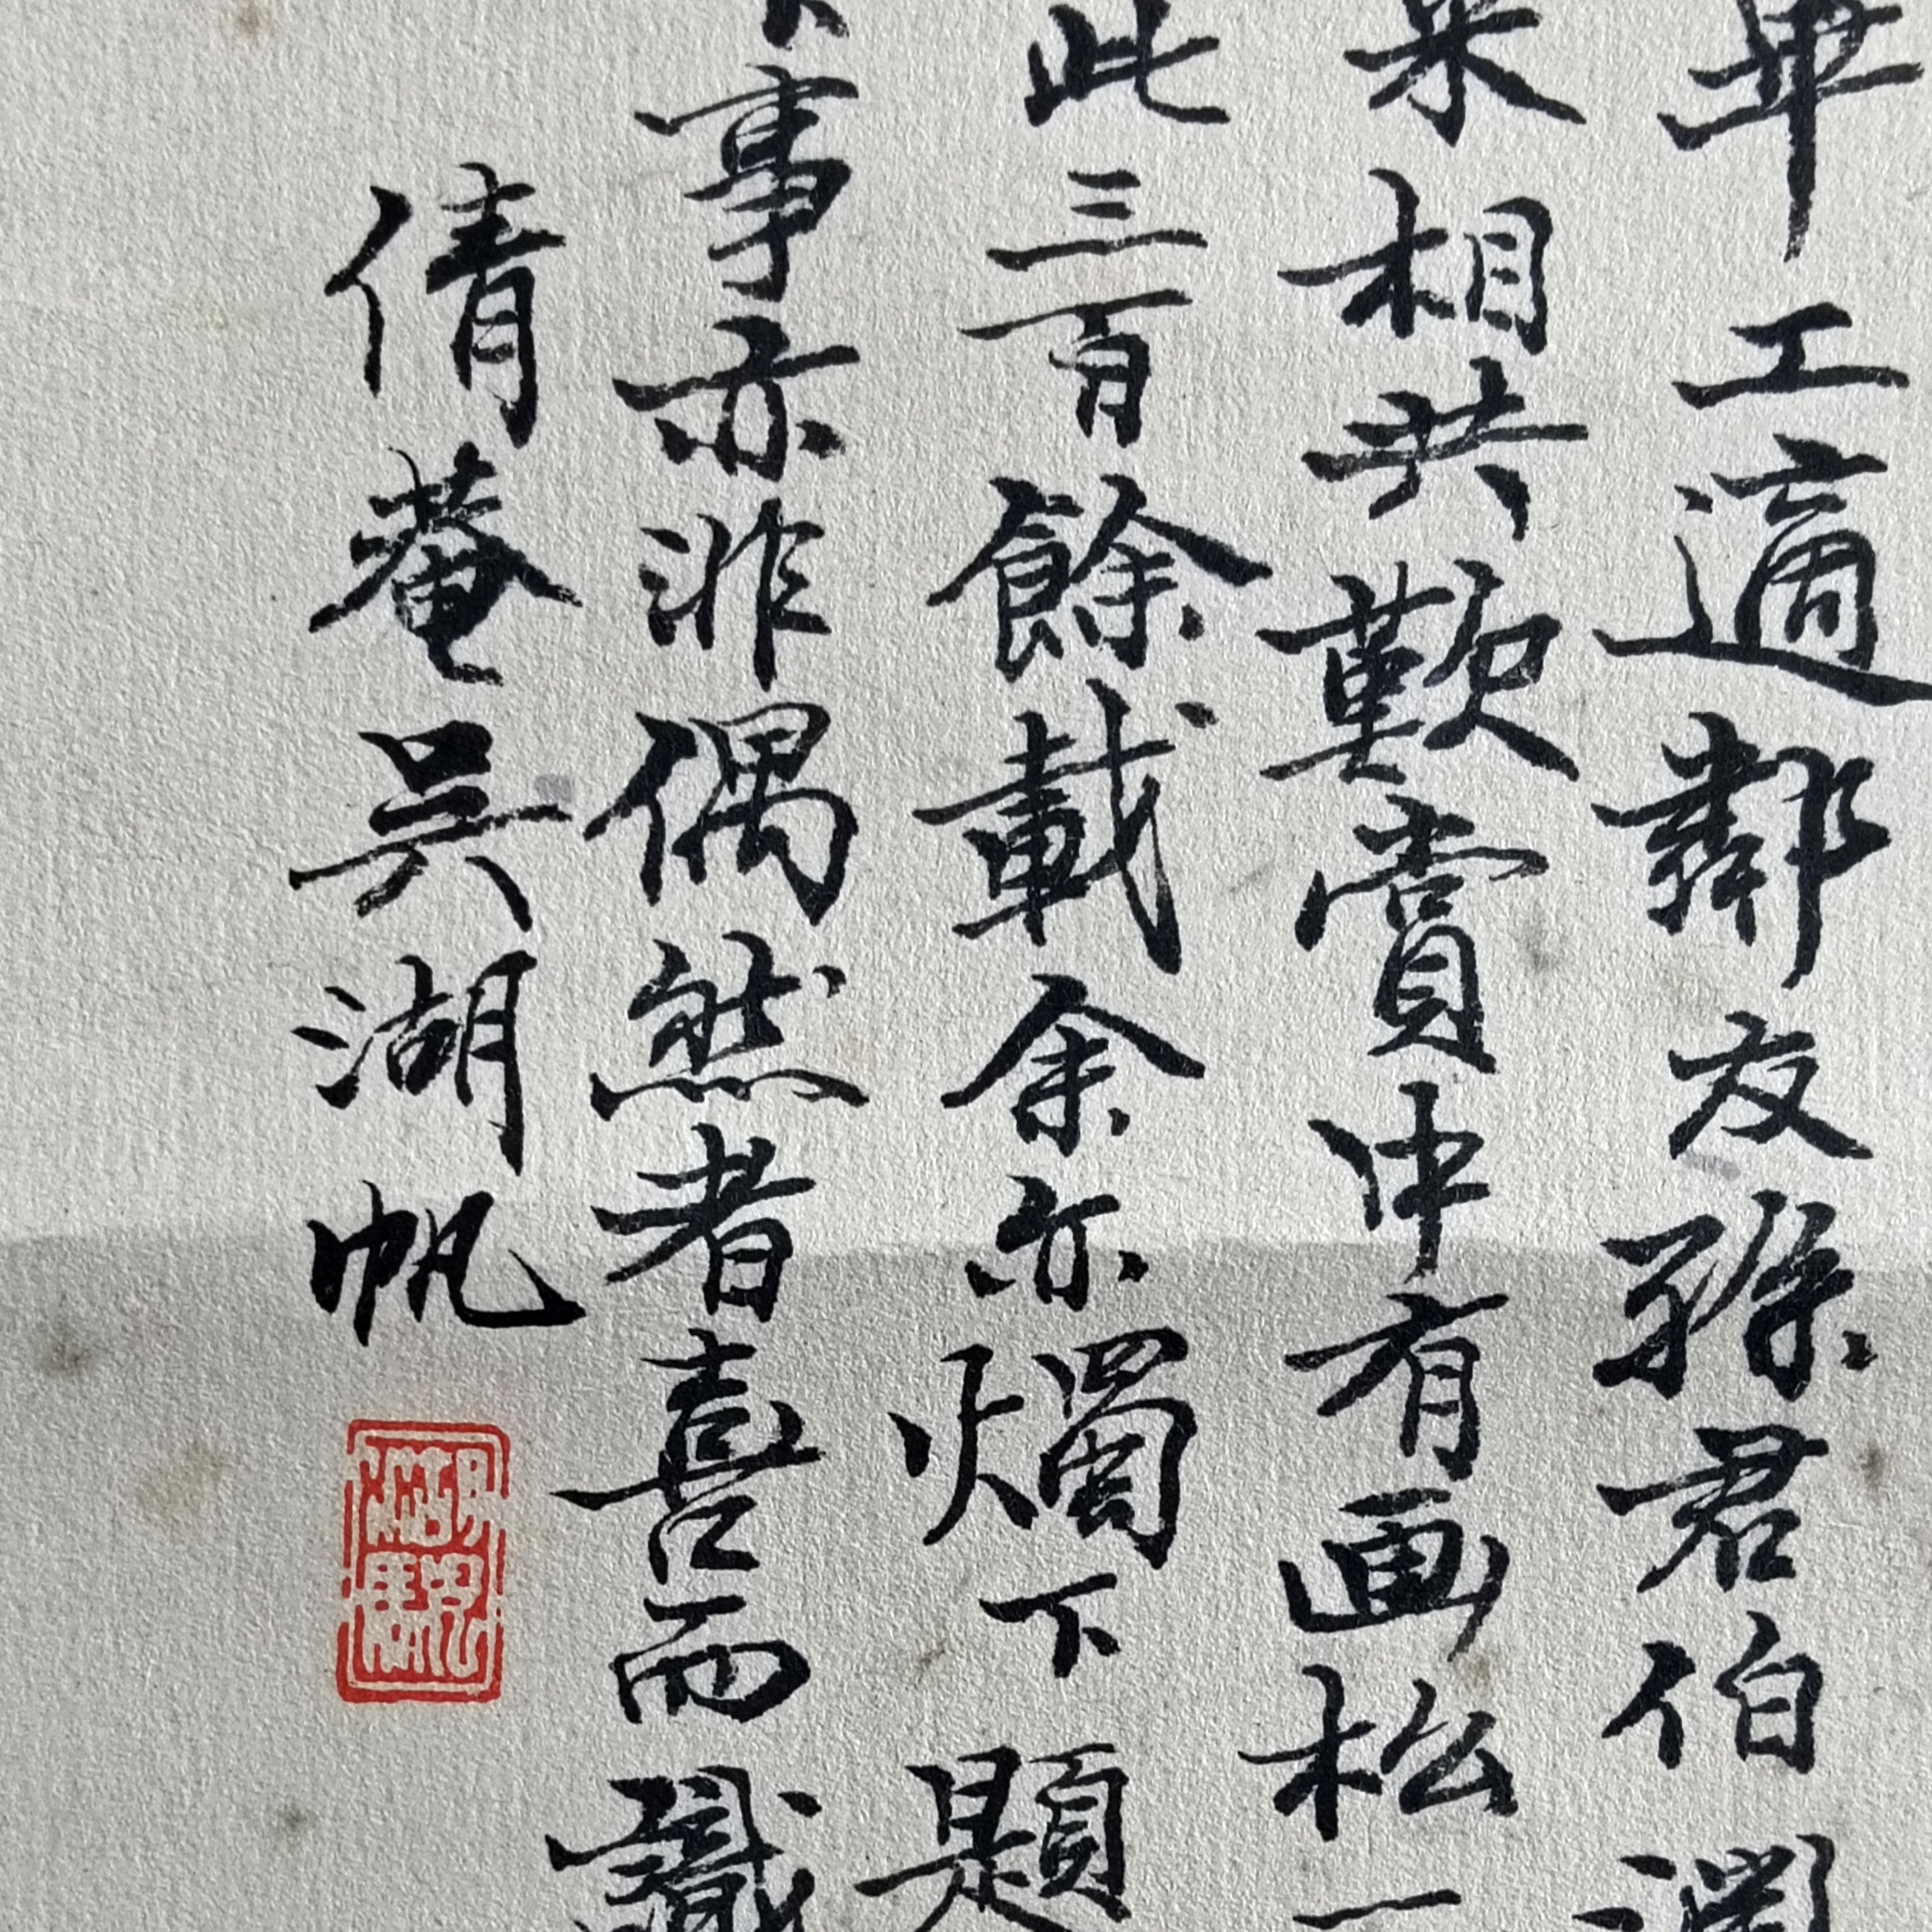 畢工適鄰友孫君伯淵
來相共歎賞中有画松一
此三百餘載余亦燭下題
事亦非偶然者喜而識
倩菴吴湖帆